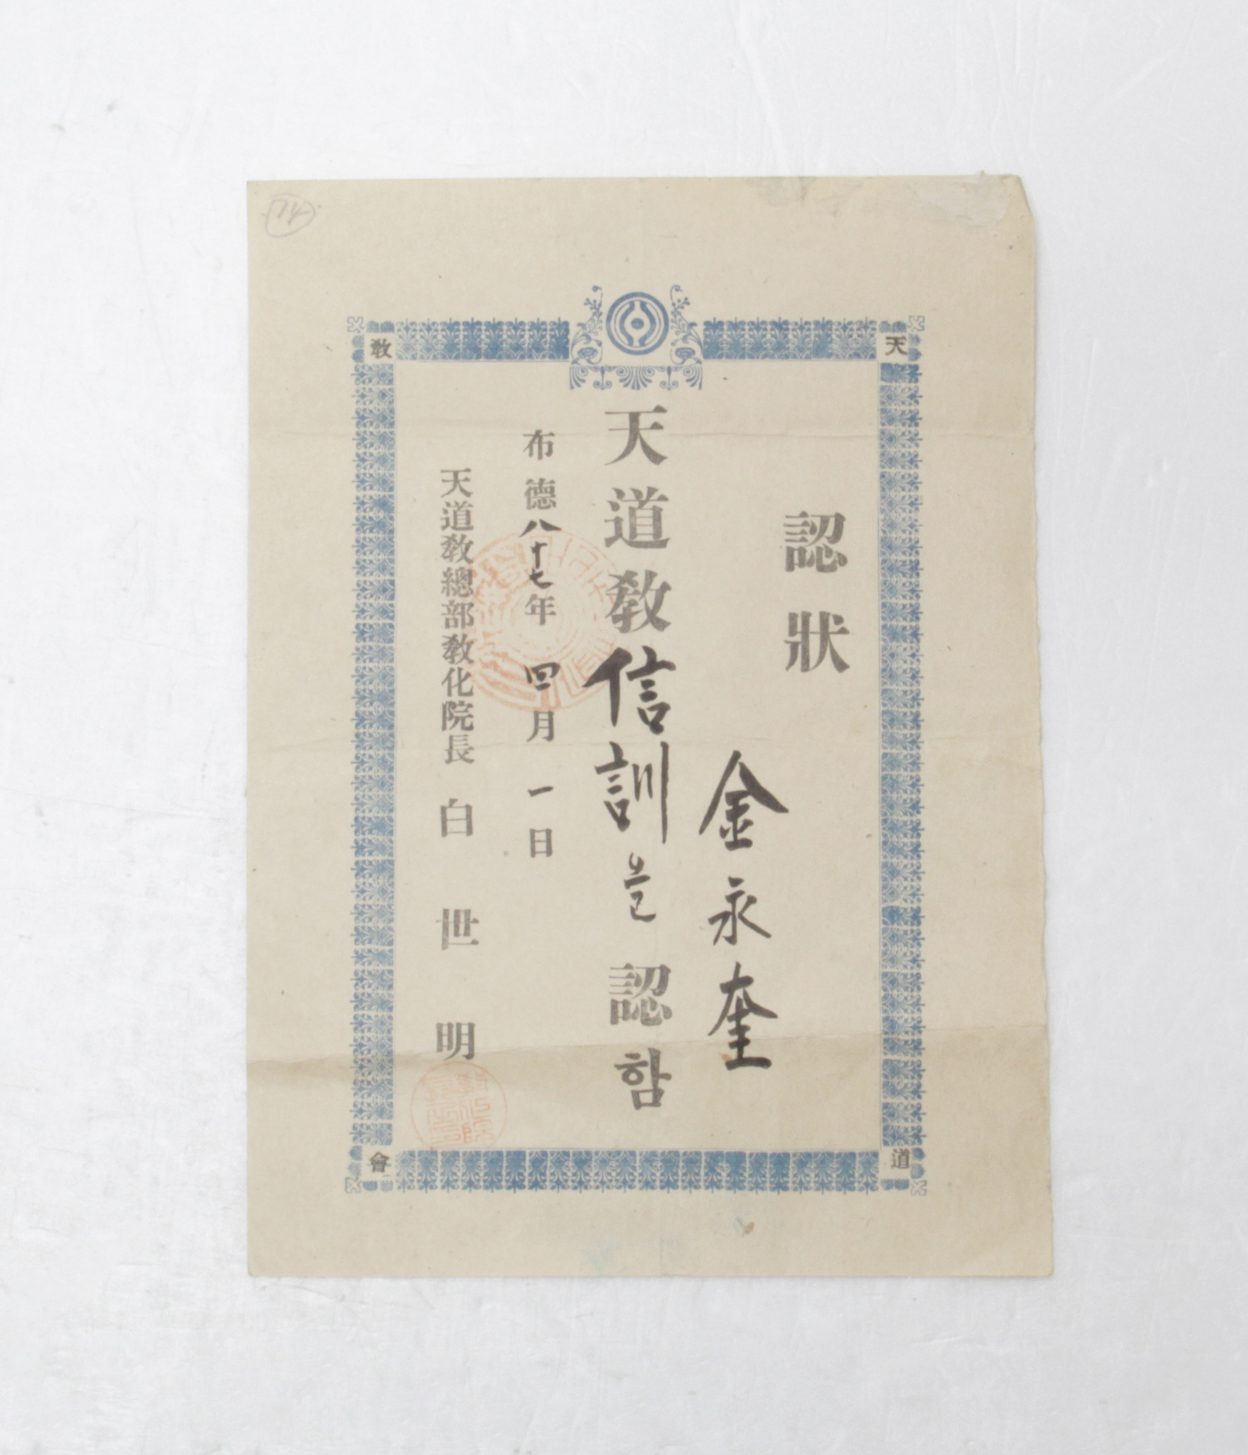 天
道
敎
會
認狀
金永奎
天道敎信訓으로 認함
布德八十七年 四月 一日
天道敎總部敎化院長 白世明